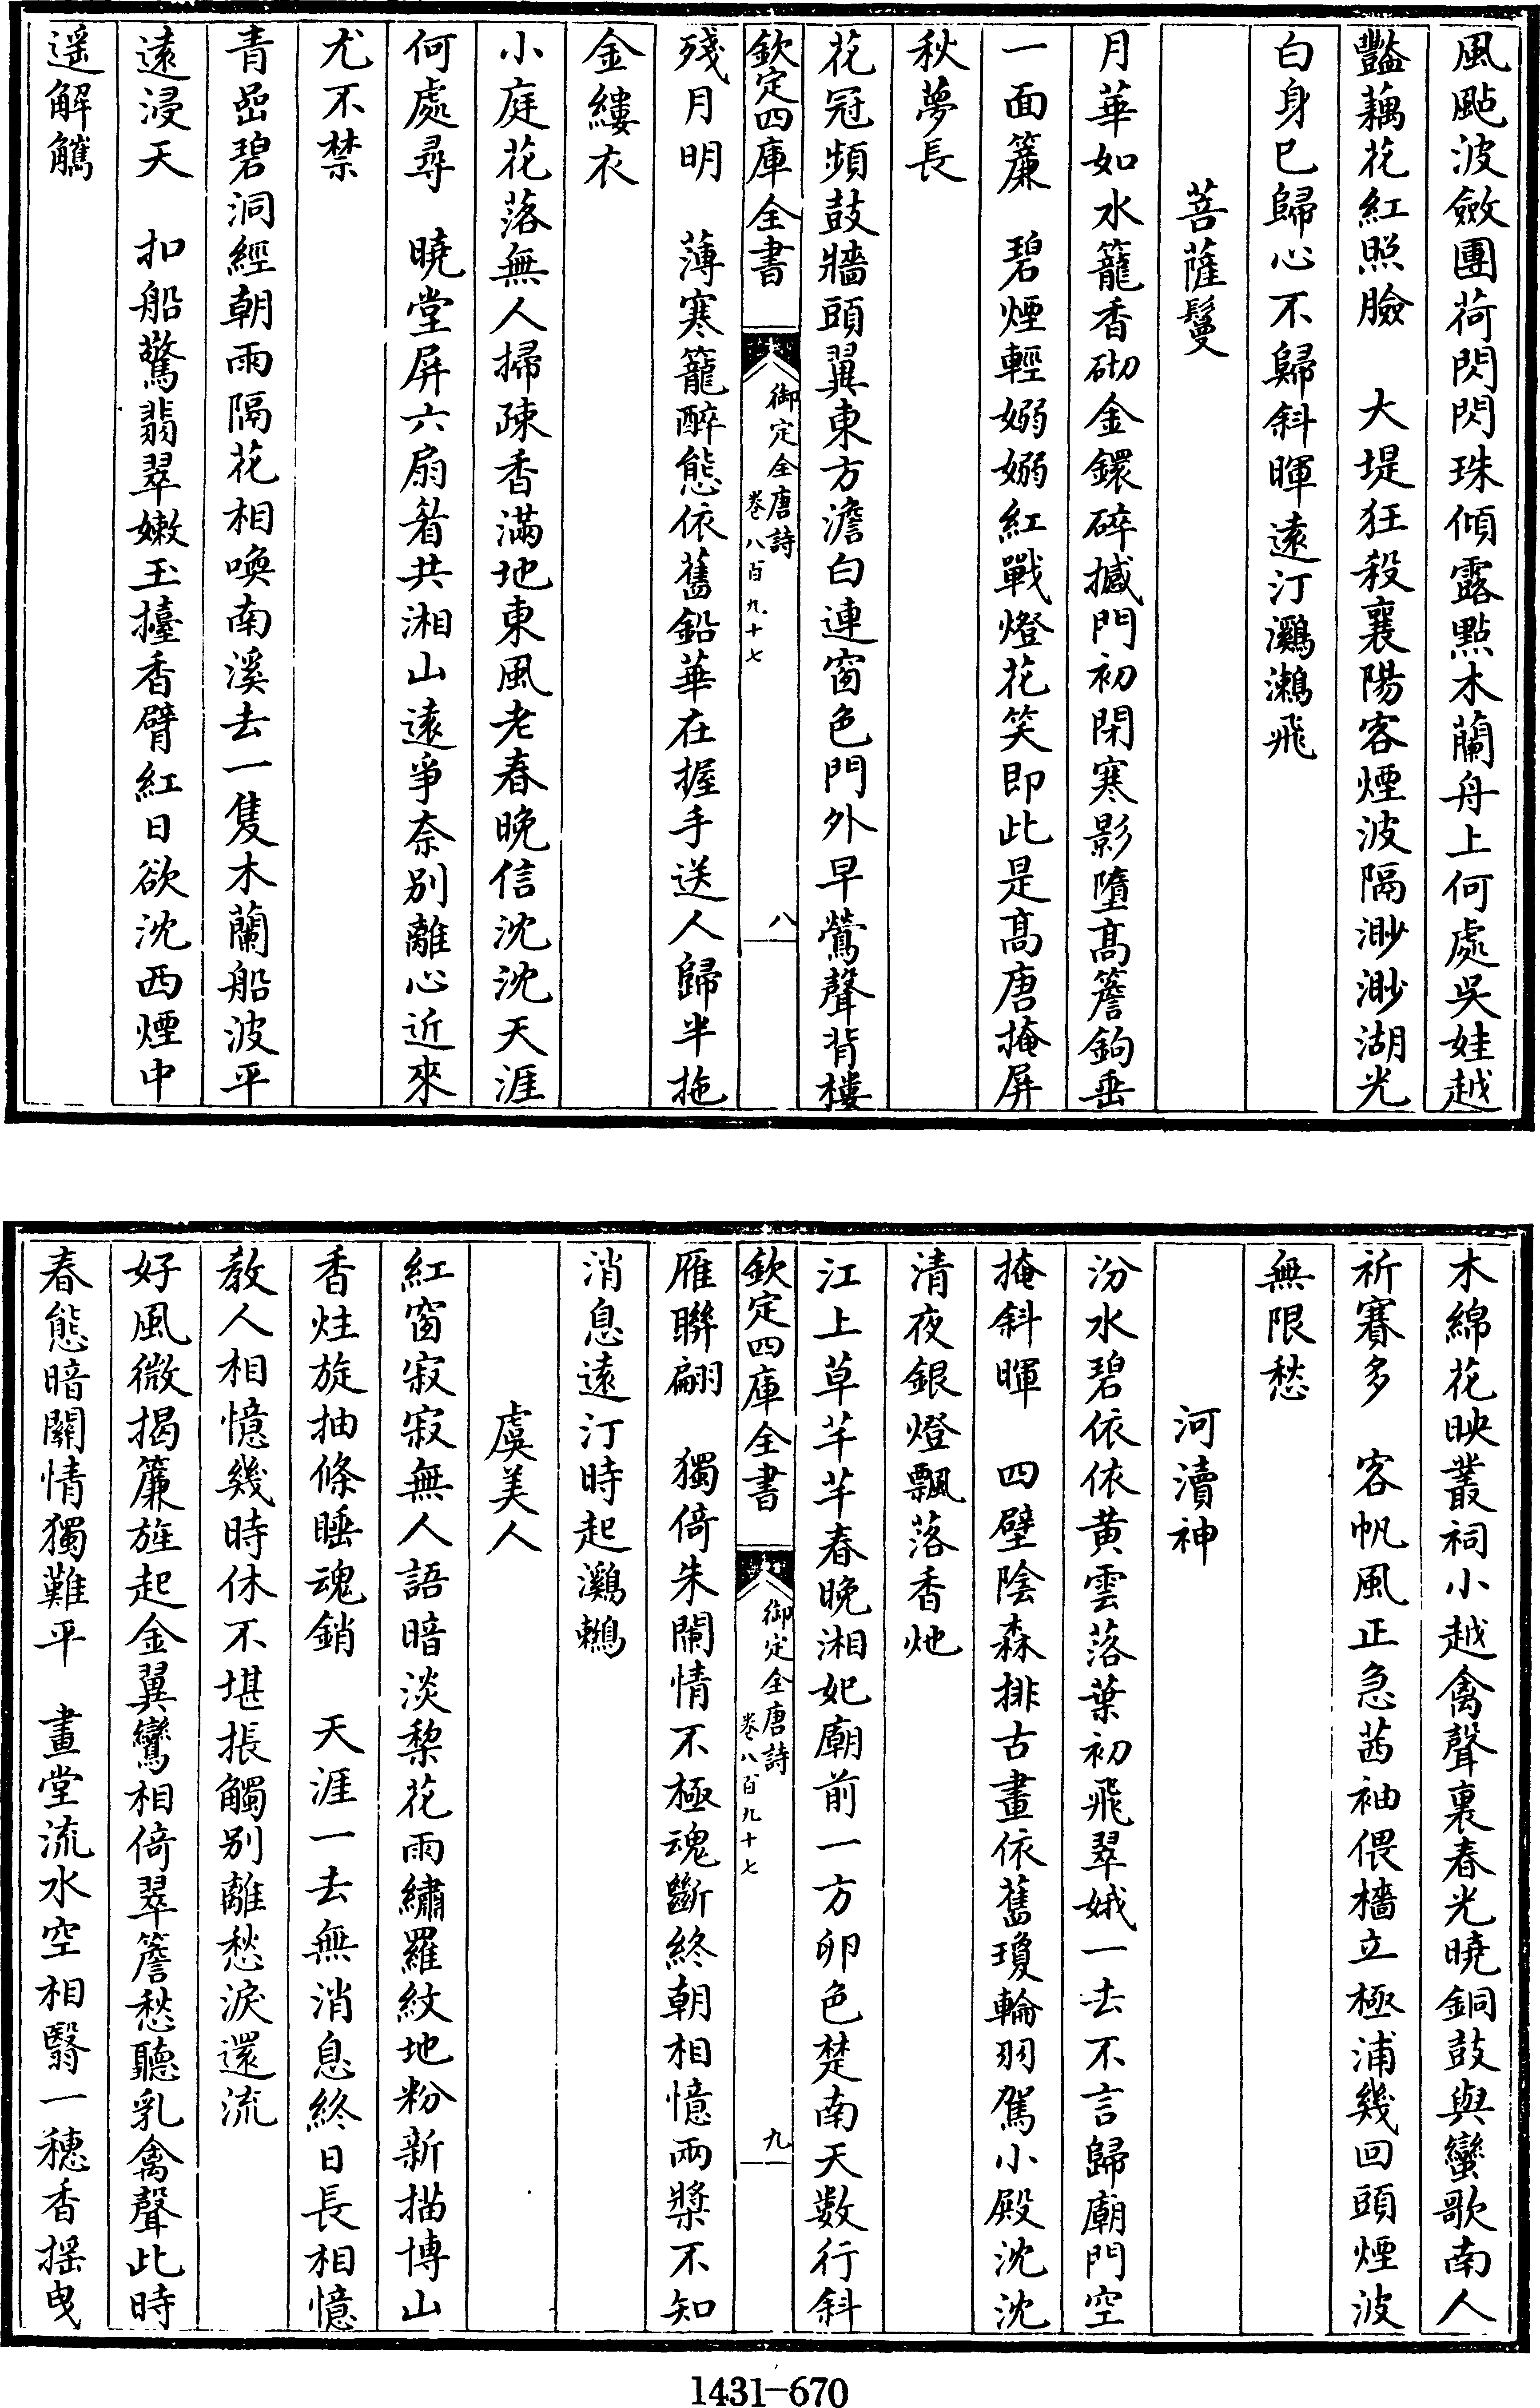 風颭波斂團荷閃閃珠傾露㸃木蘭舟上何處吳娃越
豔藕花紅照臉　大堤狂殺襄陽客煙波隔渺渺湖光
白身已歸心不歸斜暉遠汀鸂鷘飛
菩薩鬘
月華如水籠香砌金鐶碎撼門初閉寒影墮髙簷鉤垂
一面簾　碧煙輕嫋嫋紅戰燈花笑即此是髙唐掩屏
秋夢長
花冠頻鼓牆頭翼東方澹白連窗色門外早鶯聲背樓
欽定四庫全書
御定全唐詩
卷八百九十七
八
殘月明　薄寒籠醉態依舊鉛華在握手送人歸半拖
金縷衣
小庭花落無人掃疎香滿地東風老春晚信沈沈天涯
何處尋　曉堂屏六扇眉共湘山遠爭奈别離心近來
尤不禁
青嵒碧洞經朝雨隔花相喚南溪去一隻木蘭船波平
遠浸天　扣船驚翡翠嫩玉擡香臂紅日欲沈西煙中
遥解觿
木綿花映叢祠小越禽聲裏春光曉銅鼓與蠻歌南人
祈賽多　客帆風正急茜袖偎檣立極浦幾回頭煙波
無限愁
河瀆神
汾水碧依依黄雲落葉初飛翠娥一去不言歸廟門空
掩斜暉　四壁陰森排古畫依舊瓊輪羽駕小殿沈沈
清夜銀燈飄落香灺
江上草芊芊春晚湘妃廟前一方卵色楚南天數行斜
欽定四庫全書
御定全唐詩
卷八百九十七
九
雁聯翩　獨倚朱闌情不極魂斷終朝相憶兩槳不知
消息遠汀時起鸂鷘
虞美人
紅窗寂寂無人語暗淡棃花雨繡羅紋地粉新描博山
香炷旋抽條睡魂銷　天涯一去無消息終日長相憶
教人相憶幾時休不堪掁觸别離愁淚還流
好風微揭簾旌起金翼鸞相倚翠簷愁聽乳禽聲此時
春態暗關情獨難平　畫堂流水空相翳一穗香揺曳
1431-670